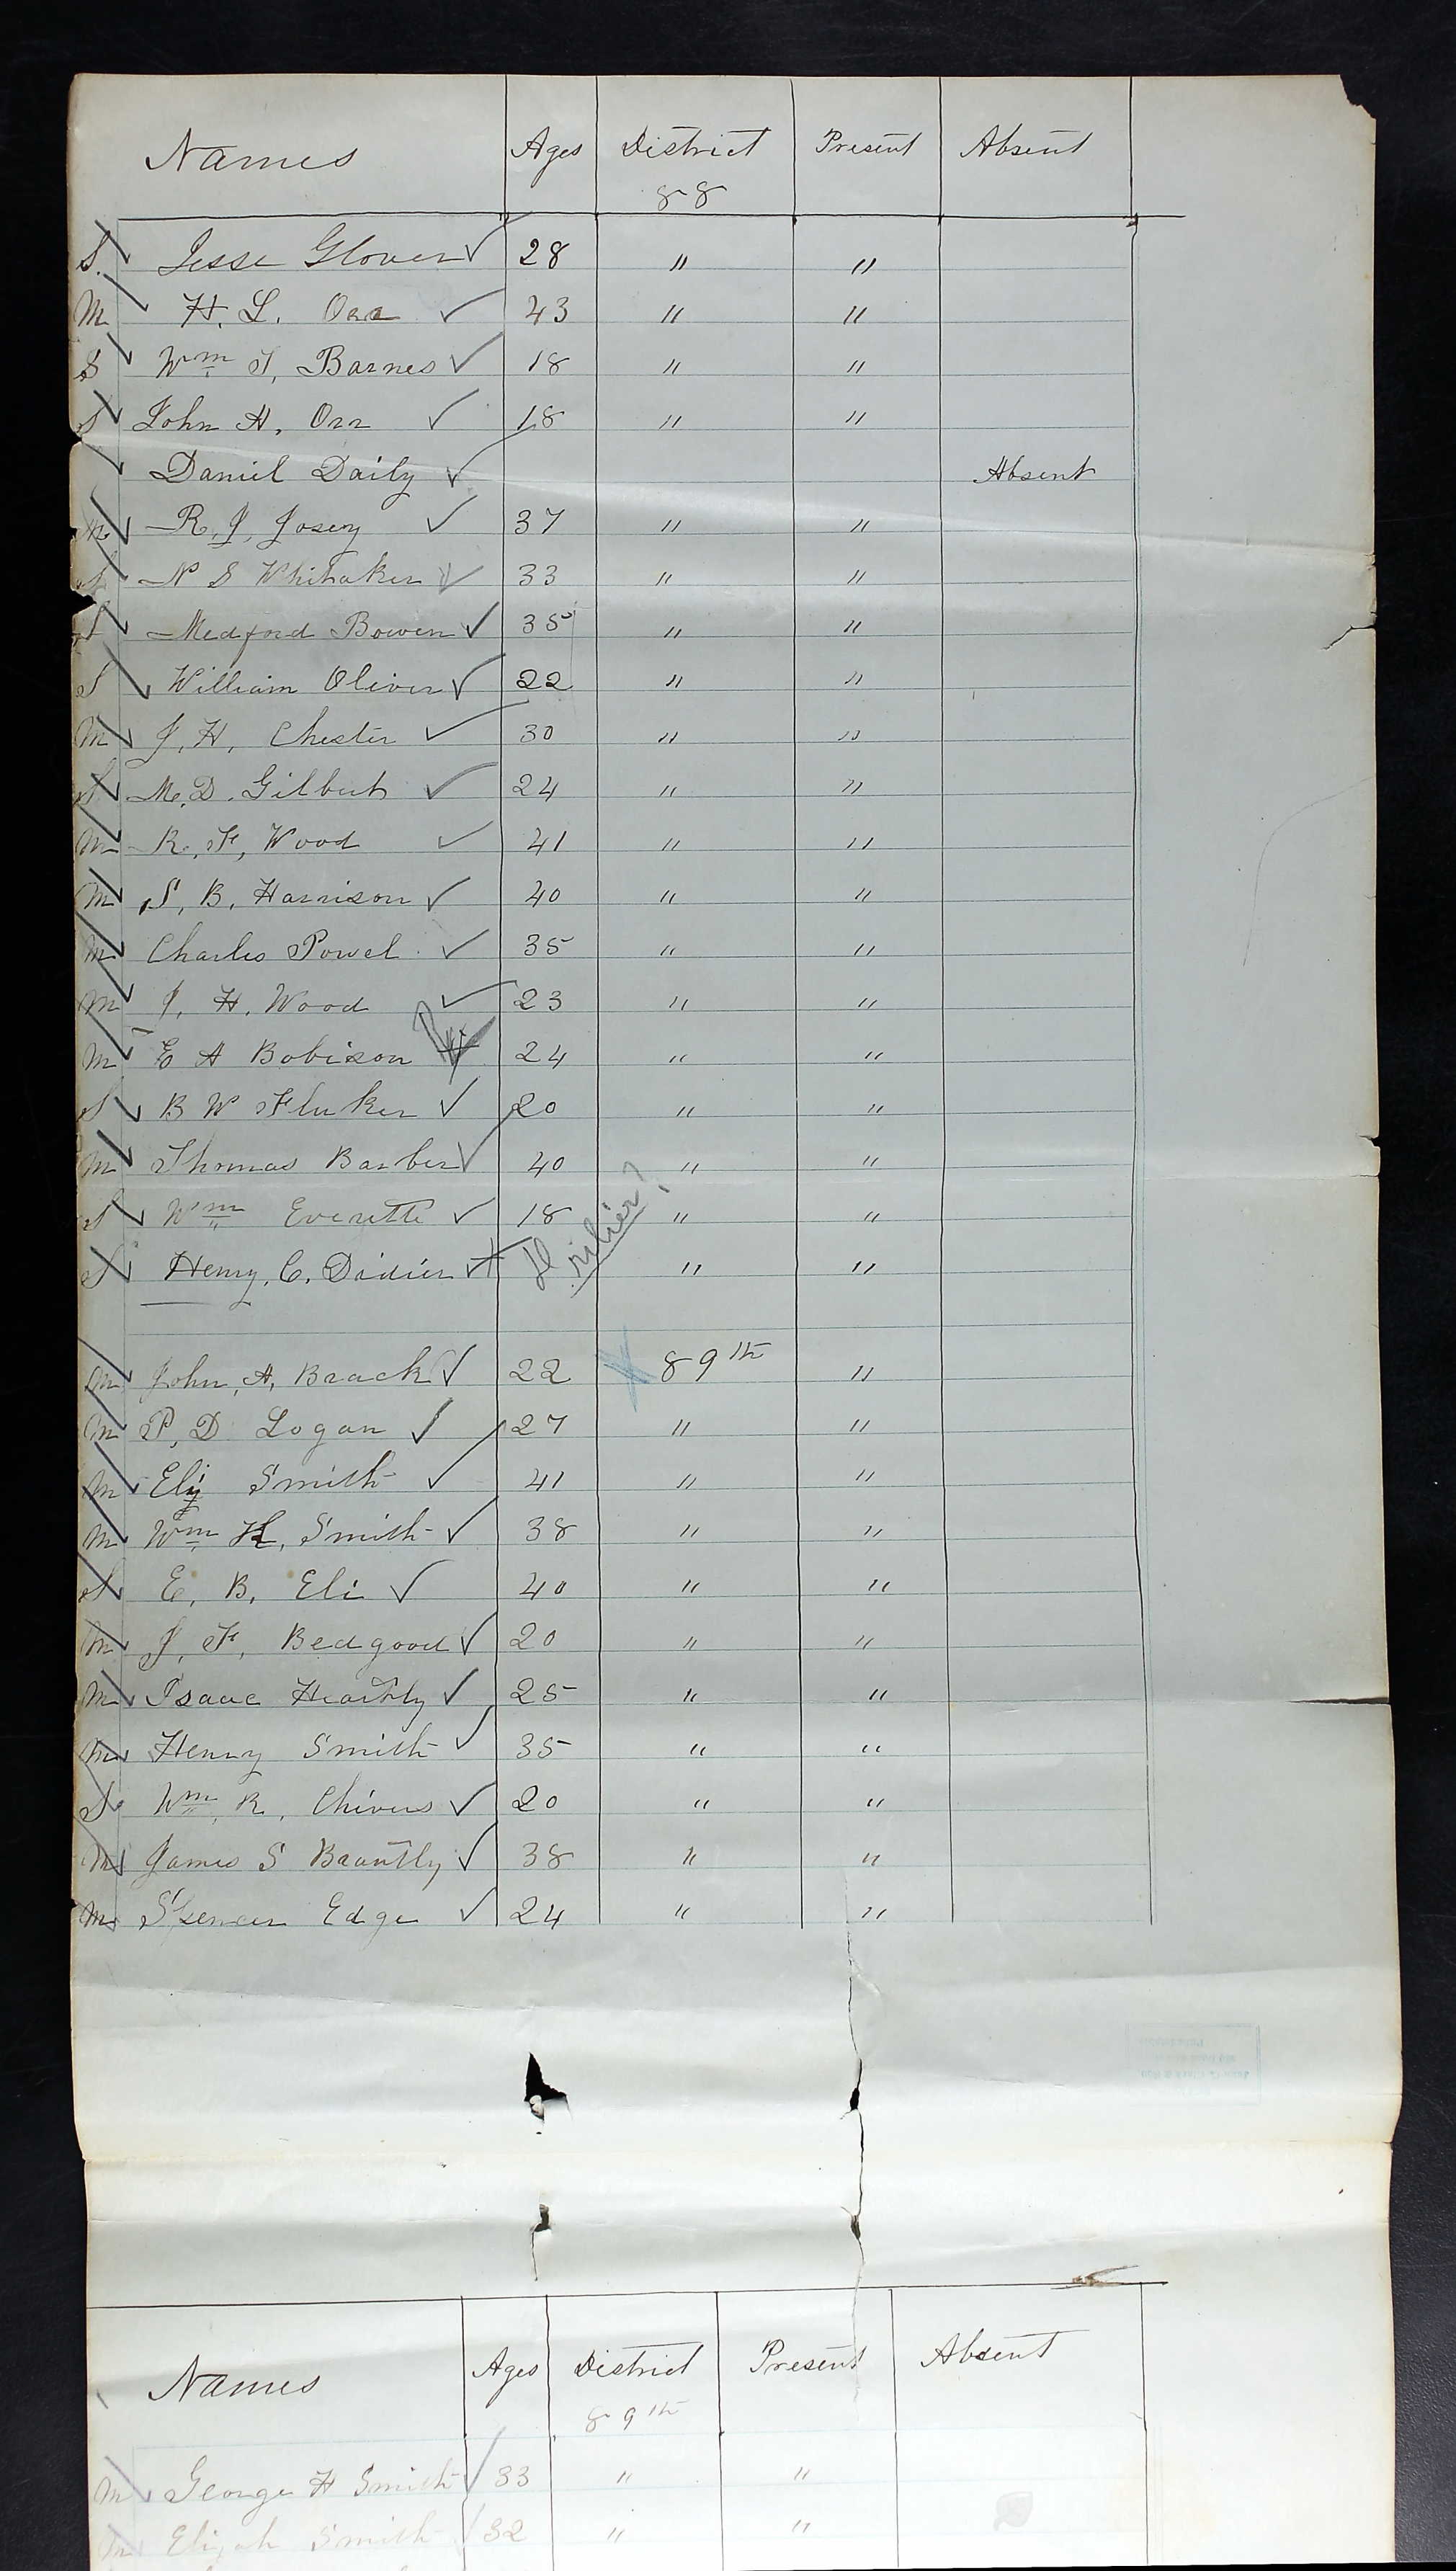 Names Ages District Present Absent
88
S. Jesse Glover 28 " "
M H. L. Orr 43 " "
S Wm T, Barnes 18 " "
S John A, Orr 18 " "
Daniel Daily Absent
R, J, Josey 37 " "
S N S Whitaker 33 " "
S Medford Bowen 35 " "
S William Oliver 22 " "
M J, H, Chester 30 " "
S M, D. Gilbert 24 " "
M R, F, Wood 41 " "
M S, B, Harrison 40 " "
M Charles Powel 35 " "
M J, H, Wood 23 " "
M E A Bobison 24 " "
S B W Fluker 20 " "
M Thomas Barber 40 " "
S Wm Everette 18 " "
S Henry, C, Didier " "
M John, A, Brack 22 89th "
M P, D Logan 27 " "
M Eli Smith 41 " "
M Wm H, Smith 38 " "
S E, B, Eli 40 " "
M J, F, Bedgood 20 " "
M Isaac Heathly 25 " "
M Henry Smith 35 " "
S Wm, R, Chivers 20 " "
M James S Brantly 38 " "
M Spencer Edge 24 " "
Names Ages District Present Absent
89th
M George H Smith 33 " "
M Elijah Smith 32 " "